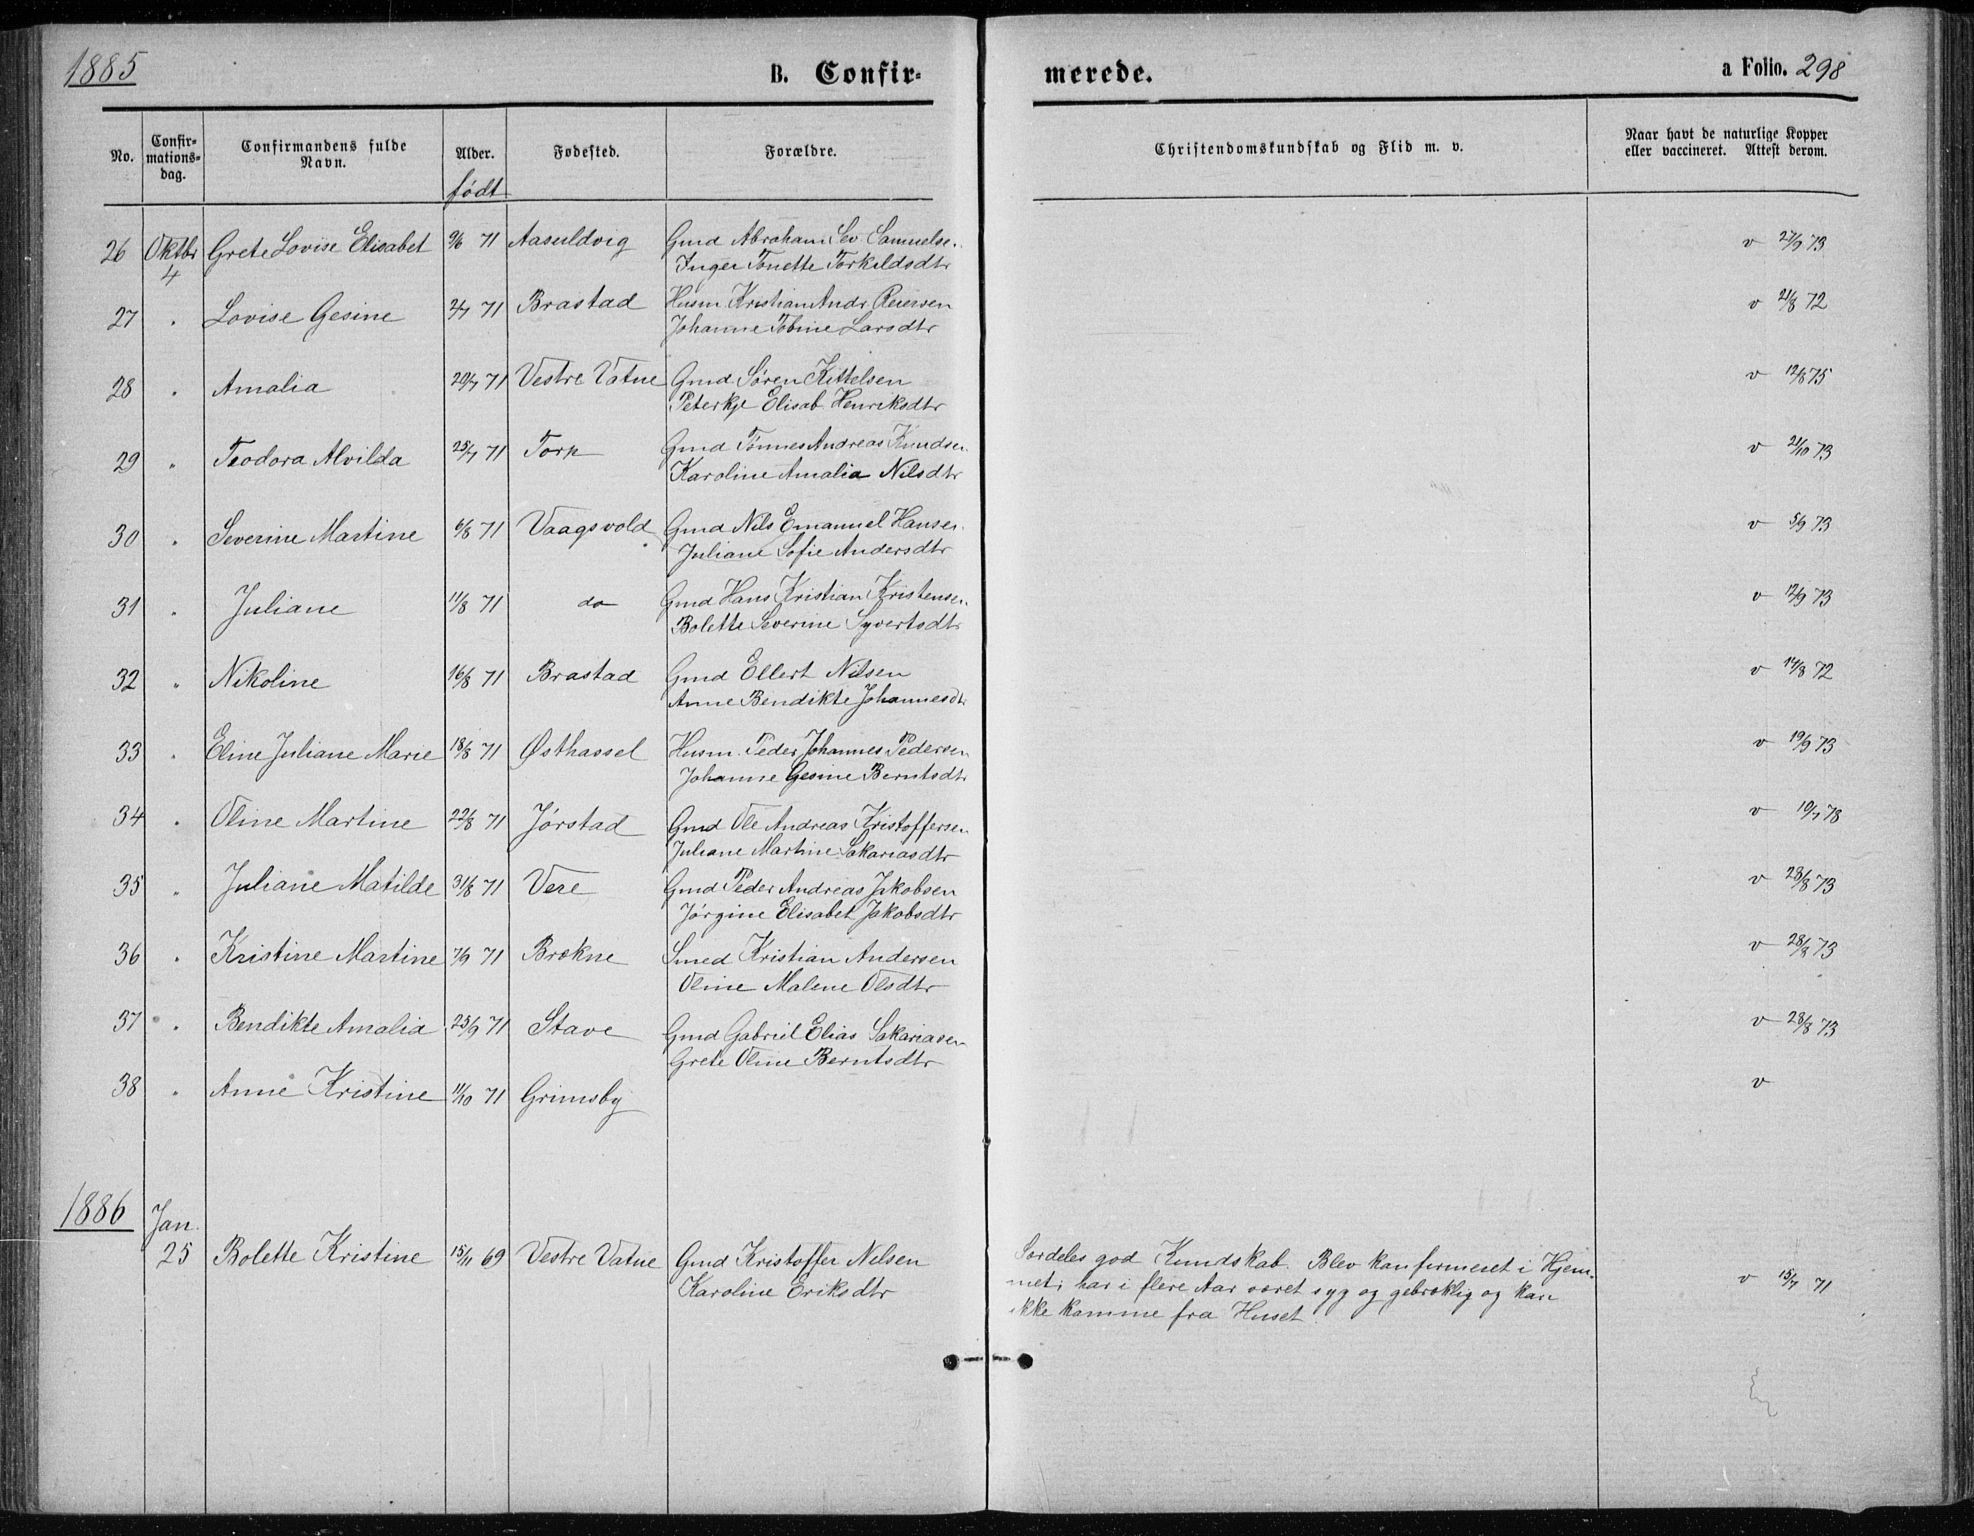 1885 B. Confir- merede. a Folio. 298
No. Confir-mations-dag. Confirmandens fulde Navn. Alder. Fødested. Forældre. Christendomskundskab og Flid m. v. Naar havt de naturlige Kopper eller vaccineret. Attest derom.
født
26 Oktbr 4 Grete Lovise Elisabet 9/6 71 Aasuldvig Gmd Abraham Sev. Samuelse. v 27/9 73
Inger Tonette Torkildsdtr
27 " Lovise Gesine 71 Brastad Husm. Kristian Andr Reiersen v 21/8 72
Johanne Tobine Larsdtr
28 " Amalia 20/7 71 Vestre Vatne Gmd Søren Kittelsen v 12/8 75
Peterkje Elisab. Henriksdtr
29 " Teodora Alvilda 25/7 71 Torp Gmd Tønnes Andreas Knudsen v 21/10 73
Karoline Amalia Nilsdtr
30 " Severine Martine 6/8 71 Vaagsvold Gmd Nils Emanuel Hansen v 5/9 73
Juliane Sofie Andersdtr
31 " Juliane 11/8 71 do Gmd Hans Kristian Kristensen v 12/9 73
Bolette Severine Syvertsdtr
32 " Nikoline 16/8 71 Brastad Gmd Ellert Nilsen v 14/8 72
Anne Bendikte Johannesdtr
33 " Eline Juliane Marie 18/8 71 Østhassel Husm. Peder Johannes Pedersen v 19/9 73
Johanne Gesine Berntsdtr
34 " Oline Martine 22/8 71 Jørstad Gmd Ole Andreas Kristoffersen v 10/7 78
Juliane Martine Sakariasdtr
35 " Juliane Matilde 31/8 71 Vere Gmd Peder Andreas Jakobsen v 28/8 73
Jørgine Elisabet Jakobsdtr
36 " Kristine Martine 7/9 71 Brekne Smed Kristian Andersen v 28/8 73
Oline Malene Olsdtr
37 " Bendikte Amalia 25/9 71 Stave Gmd Gabriel Elias Sakariasen v 28/8 73
Grete Oline Berntsdtr
38 " Anne Kristine 11/10 71 Grimsby v
1886 Jan.
25 Bolette Kristine 15/11 69 Vestre Vatne Gmd Kristoffer Nilsen Særdeles god Kundskab. Blev konfirmeret i Hjem-
Karoline Eriksdtr met; har i flere Aar været syg og gebrøklig og kan v 15/7 71
ikke komme fra Huset.